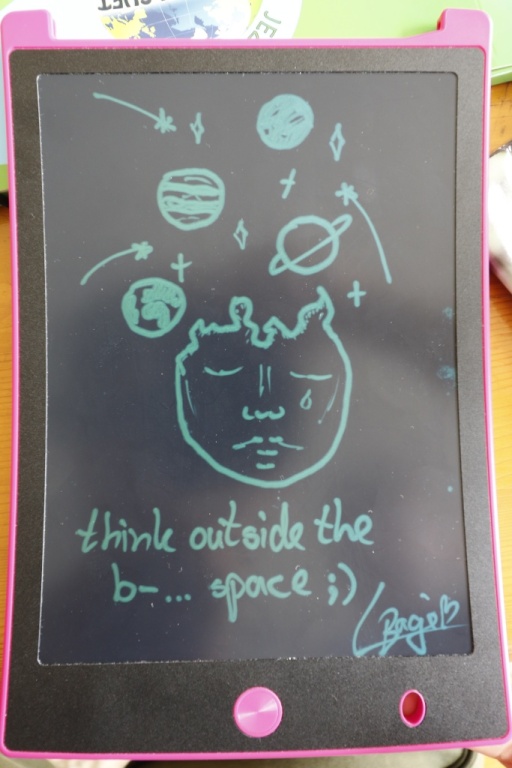 think outside the
b-... space ;)